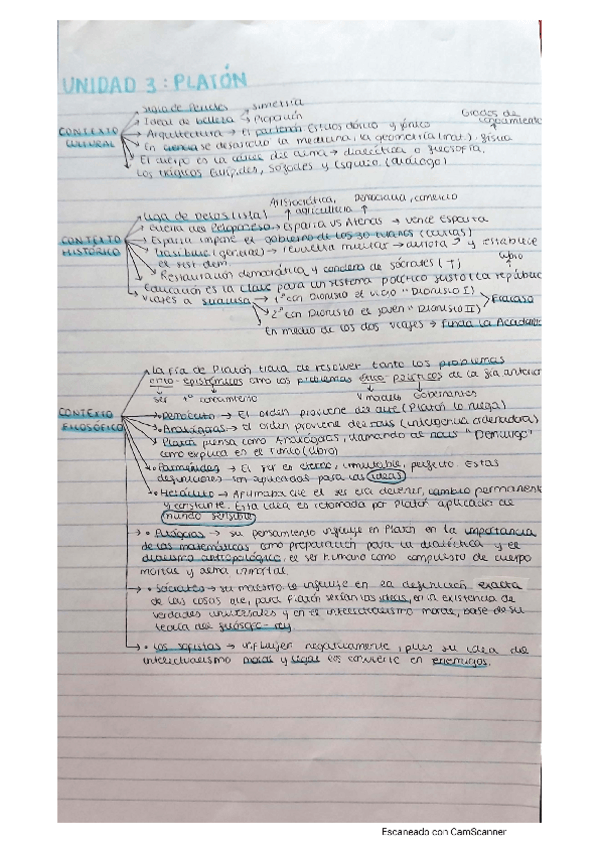 UNIDAD 3: PLATÓN
CONTEXTO CULTURAL
Siglo de Pericles
Ideal de belleza → simetría
Proporción
Arquitectura → El partenón Estilos dórico y jónico
Grados de conocimiento
En ciencia se desarrolla la medicina, la geometría (mat.), física
El cuerpo es la cárcel del alma → dialéctica o filosofía.
Los trágicos Eurípides, Sófocles y Esquilo (diálogo)
CONTEXTO HISTÓRICO
Aristocrática, agricultura
Democracia, comercio
Liga de Delos (Islas)
Guerra del Peloponeso → Esparta vs Atenas → vence Esparta
Esparta impone el gobierno de los 30 tiranos
Trasíbulo (general) → revuelta militar → derrota y establece
el sist dem.
Restauración democrática y condena de Sócrates (†)
libro
Educación es la clave para un sistema político justo (La república
Viajes a Siracusa → 1º con Dionisio el viejo "Dionisio I"
2º con Dionisio el joven "Dionisio II"
Fracaso
En medio de los dos viajes → funda la Academia
CONTEXTO FILOSÓFICO
La fía de Platón trata de resolver tanto los problemas
onto-epistémicos como los problemas ético-políticos de la fía anterior
ser
conocimiento
morales
gobernantes
Demócrito → El orden proviene del (Platón lo niega)
Anaxágoras → el orden proviene del nous (inteligencia ordenadora)
Platón piensa como Anaxágoras, llamando al nous "Demiurgo"
como explica en el Timeo (libro)
Parménides → El ser es eterno, inmutable, perfecto. Estas
definiciones son aplicadas para las ideas
Heráclito → Afirmaba que el ser era devenir, cambio permanente
y constante. Esta idea es retomada por Platón aplicado al
mundo sensible
• Pitágoras → su pensamiento influye en Platón en la importancia
de las matemáticas, como preparación para la dialéctica y el
dualismo antropológico, el ser humano como compuesto de cuerpo
mortal y alma inmortal.
• Sócrates → su maestro le influye en la definición exacta
de las cosas que, para Platón serían las ideas, en la existencia de
verdades universales y en el intelectualismo moral, base de su
teoría del filósofo-rey
• Los sofistas → influyen negativamente, pues su idea de
intelectualismo moral y los convierte en enemigos.
Escaneado con CamScanner